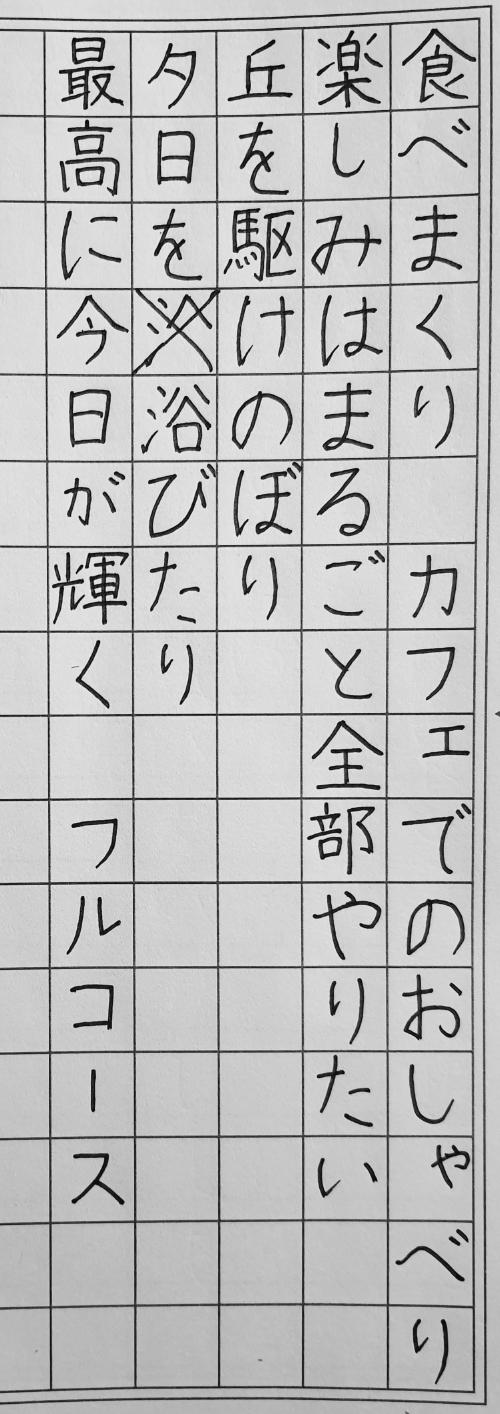 食べまくり　カフェでのおしゃべり
楽しみはまるごと全部やりたい
丘を駆けのぼり
夕日を浴びたり
最高に今日が輝く　フルコース